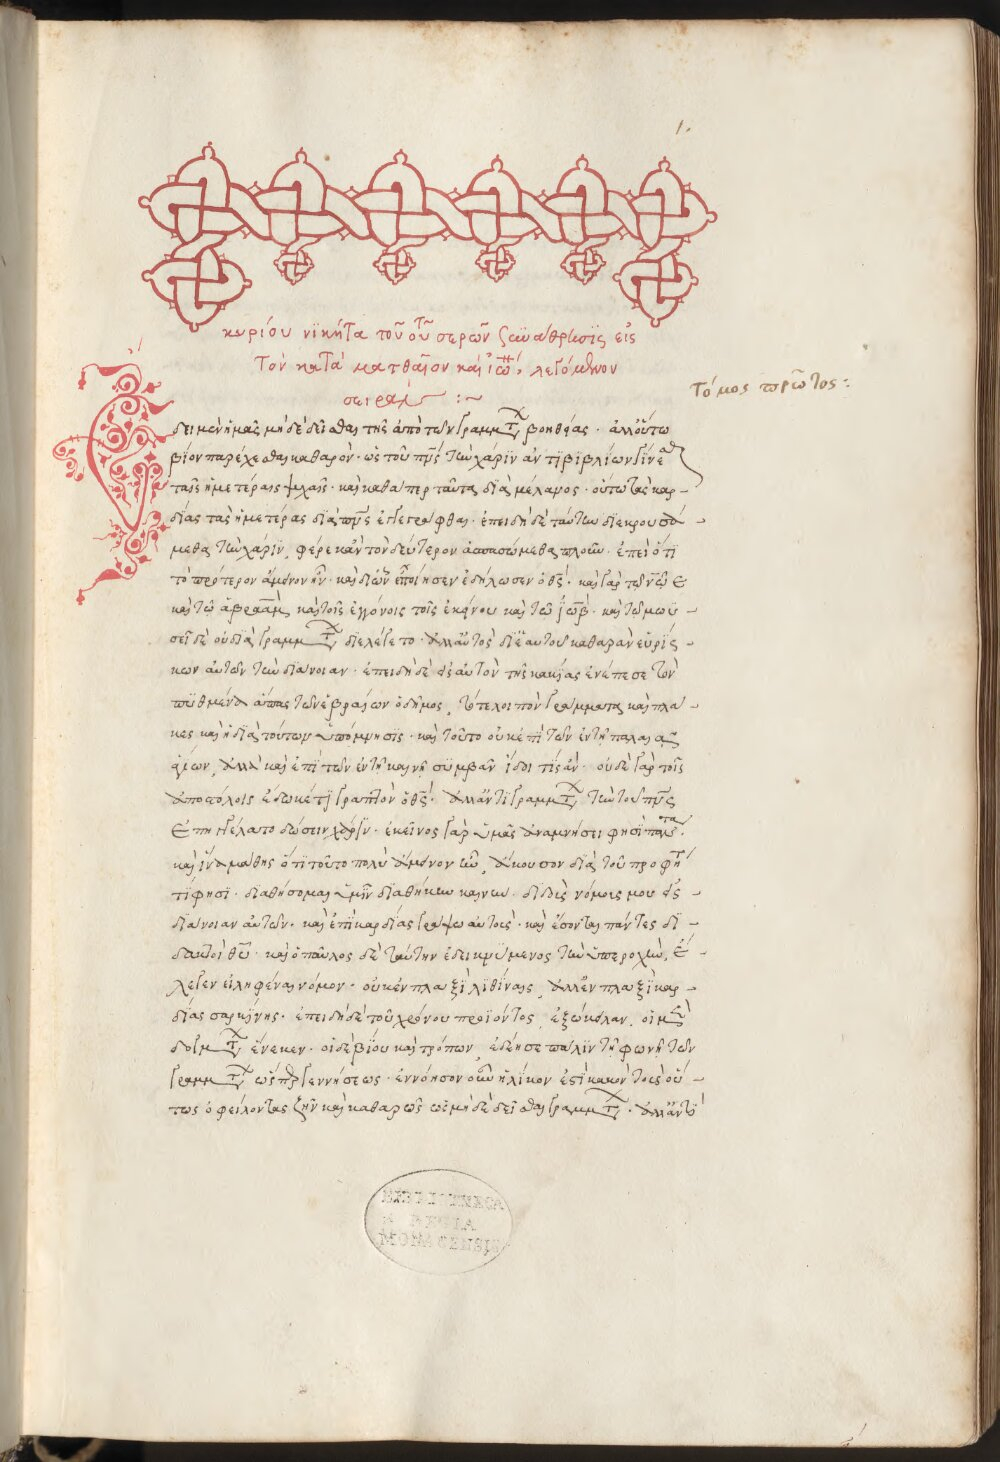 1.
κυρίου νϊκήτα τοῦ σερῶν ζαϋαθρωσϊς εἰς
Τὸν κατὰ ματθαῖον καὶ ἰω, λεγόμενον
σειρὰ :~
Τόμος πρῶτος :
ἔδει μὲν ἡμᾶς μηδὲ δεῖσθαι τῆς ἀπὸ τῶν γραμμτ βοηθείας · ἀλλ' οὕτω
βίον παρέχεσθαι καθαρὸν · ὡς τοῦ πνς τὴν χάρϊν ἀντϊ βϊβλίων γίνεσθαι
ταῖς ἡμετέραις ψυχαῖς · καὶ καθάπερ ταῦτα διὰ μέλανος · οὕτω τὰς καρ-
δίας τὰς ἡμετέρας διὰ πνς ἐγγεγράφθαι · ἐπειδὴ δὲ ταύτην διεκρουσά-
μεθα τὴν χάρϊν, φέρε κἂν τὸν δεύτερον ἀσπασώμεθα πλοῦν · ἐπεὶ ὅτϊ
τὸ πρότερον ἄμεινον ἦν · καὶ δι' ὧν ἐποίησεν ἐδήλωσεν ὁ θς · καὶ γὰρ τῷ νῶε
καὶ τῷ ἀβραὰμ καὶ τοῖς ἐγγόνοις τοῖς ἐκείνου καὶ τῷ ἰὼβ · καὶ τῷ μωϋ-
σεῖ δὲ οὐ διὰ γραμμτ διελέγετο · ἀλλ' αὐτὸς δι' ἑαυτοῦ καθαρὰν εὑρίς-
κων αὐτῶν τὴν διάνοιαν · ἐπειδὴ δὲ εἰς αὐτὸν τῆς κακίας ἐνέπεσε τὸν
πυθμένα ἅπας τῶν ἑβραίων ὁ δῆμος, τότε λοιπὸν γράμματα καὶ πλά-
κες καὶ ἡ διὰ τούτων ὑπόμνησϊς · καὶ τοῦτο οὐκ ἐπὶ τῶν ἐν τῇ παλαιᾷ
ἁγίων, ἀλλὰ καὶ ἐπὶ τῶν ἐν τῇ καινῇ συμβὰν ἴδοι τίς ἂν · οὐδὲ γὰρ τοῖς
ἀποστόλοις ἔδωκέ τϊ γραπτὸν ὁ θς · ἀλλ' ἀντὶ γραμμτ τὴν τοῦ πνς
ἐπηγγείλατο δώσειν χάρϊν · ἐκεῖνος γὰρ ὑμᾶς ἀναμνήσει φησὶ πάντα ·
καὶ ἵνα μάθης ὅτϊ τοῦτο πολὺ ἄμεινον ἦν, ἄκουσον διὰ τοῦ προφήτ
τί φησϊ · διαθήσομαι ὑμῖν διαθήκην καινήν · διδοὺς νόμους μου εἰς
διάνοιαν αὐτῶν · καὶ ἐπὶ καρδίας γράψω αὐτοὺς · καὶ ἔσονται πάντες δϊ-
δακτοὶ θυ · καὶ ὁ παῦλος δὲ ταύτην ἐδεικνύμενος τὴν ὑπεροχὴν, ἔ-
λεγεν εἰληφέναι νόμον · οὐκ ἐν πλαξὶ λιθίναις, ἀλλ' ἐν πλαξὶ καρ-
δίας σαρκίνης · ἐπειδὴ δὲ τοῦ χρόνου προϊόντος, ἐξώκειλαν, οἱ μὲν
δογμτ ἕνεκεν · οἱ δὲ βίου καὶ τρόπων, ἐδέησε πάλϊν τῇ φωνῇ τῶν
γραμμτ ὑπομνήσεως · ἐννόησον οὖν ἡλίκον ἐστὶ κακὸν τοὺς οὕ-
τως ὀφείλοντας ζῆν καὶ καθαρῶς ὡς μηδὲ δεῖσθαι γραμμτ · ἀλλ' ἀντὶ
BIBLIOTHECA
REGIA
MONACENSIS